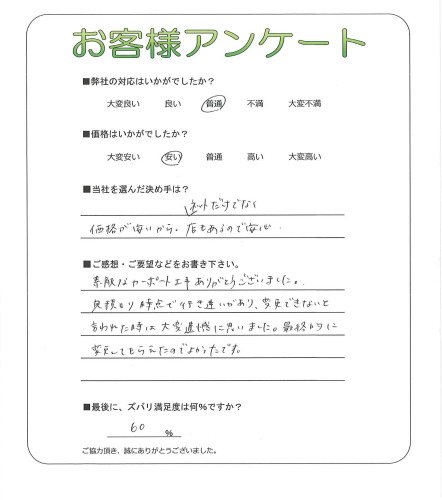 お客様アンケート
■弊社の対応はいかがでしたか?
大変良い 良い 普通 不満 大変不満
■価格はいかがでしたか?
大変安い 安い 普通 高い 大変高い
■当社を選んだ決め手は?
ネットだけでなく
価格が安いから。店もあるので安心.
■ご感想・ご要望などをお書き下さい。
素敵なカーポート工事ありがとうございました。
見積もり時点で行き違いがあり、変更できないと
言われた時は大変遺憾に思いました。最終的に
変更してもらえたのでよかったです。
■最後に、ズバリ満足度は何%ですか?
60 %
ご協力頂き、誠にありがとうございました。